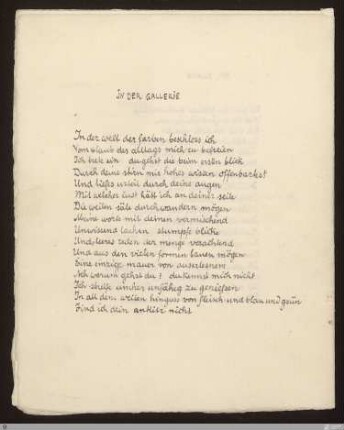 IN DER GALLERIE
In der welt der farben beschloss ich
Vom staub des alltags mich zu befreien
Ich trete ein · du gehst die beim ersten blick
Durch deine stirn mir hohes wissen offenbarest
Und tiefes urteil durch deine augen
Mit welcher lust hätt ich an deiner seite
Die weiten säle durchwandern mögen
Meine worte mit deinen vermischend
Unwissend lachen stumpfe blicke
Und leeres reden der menge verachtend
Und aus den vielen formen bauen mögen
Eine einzige mauer von auserlesnem
Ach warum gehst du? du kennst mich nicht
Ich streife umher unfähig zu geniessen
In all dem weiten hingus von fleisch und blau und grün
Find ich dein antlitz nicht